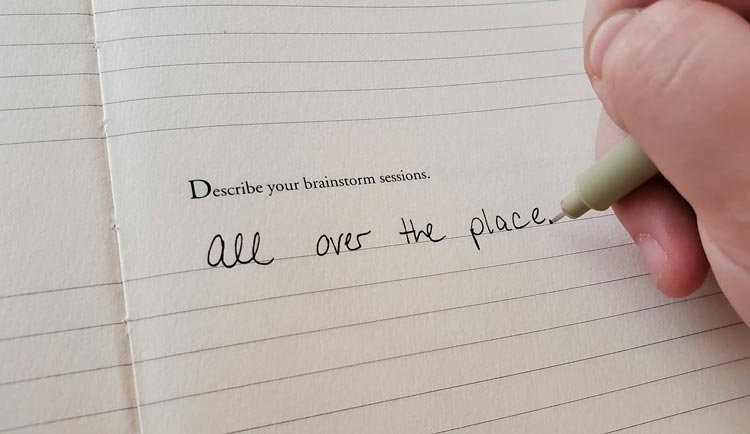 Describe your brainstorm sessions.
all over the place.